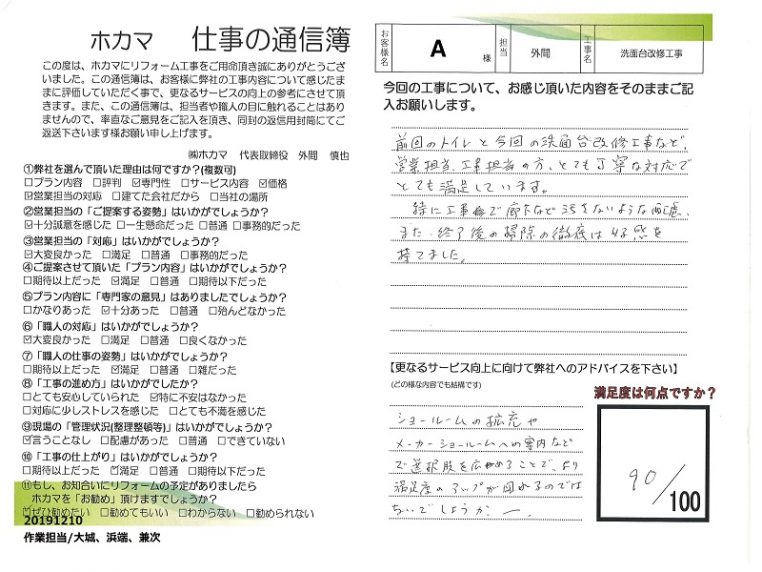 ホカマ 仕事の通信簿
この度は、ホカマにリフォーム工事をご用命頂き誠にありがとうござ
いました。この通信簿は、お客様に弊社の工事内容について感じたま
まに評価していただく事で、更なるサービスの向上の参考にさせて頂
きます。また、この通信簿は、担当者や職人の目に触れることはあり
ませんので、率直なご意見をご記入を頂き、同封の返信用封筒にてご
返送下さいます様お願い申し上げます。
㈱ホカマ 代表取締役 外間 慎也
①弊社を選んで頂いた理由は何ですか?(複数可)
□プラン内容 □評判 ☑専門性 □サービス内容 ☑価格
☑営業担当の対応 □建てた会社だから □当社の場所
②営業担当の「ご提案する姿勢」はいかがでしょうか?
☑十分誠意を感じた □一生懸命だった □普通 □事務的だった
③営業担当の「対応」はいかがでしょうか?
☑大変良かった □満足 □普通 □事務的だった
④ご提案させて頂いた「プラン内容」はいかがでしょうか?
□期待以上だった ☑満足 □普通 □期待以下だった
⑤プラン内容に「専門家の意見」はありましたでしょうか?
□かなりあった ☑十分あった □普通 □殆んどなかった
⑥「職人の対応」はいかがでしょうか?
☑大変良かった □満足 □普通 □良くなかった
⑦「職人の仕事の姿勢」はいかがでしょうか?
□期待以上だった ☑満足 □普通 □雑だった
⑧「工事の進め方」はいかがでしたか?
□とても安心していられた ☑特に不安はなかった
□対応に少しストレスを感じた □とても不満を感じた
⑨現場の「管理状況(整理整頓等)」はいかがでしょうか?
☑言うことなし □配慮があった □普通 □できていない
⑩「工事の仕上がり」はいかがでしょうか?
□期待以上だった ☑満足 □普通 □期待以下だった
⑪もし、お知合いにリフォームの予定がありましたら
ホカマを「お勧め」頂けますでしょうか?
☑ぜひ勧めたい □勧めてもいい □わからない □勧められない
20191210
作業担当/大城、浜端、兼次
お客様名 A 様 担当 外間 工事名 洗面台改修工事
今回の工事について、お感じ頂いた内容をそのままご記
入お願いします。
前回のトイレと今回の洗面台改修工事など、
営業担当、工事担当の方、とても丁寧な対応で
とても満足しています。
特に工事で廊下など汚さないような配慮、
また、終了後の掃除の徹底は好感を
持てました。
【更なるサービス向上に向けて弊社へのアドバイスを下さい】
(どの様な内容でも結構です)
ショールームの拡充や
メーカーショールームへの案内など
で選択肢を広めることで、より
満足度のアップが図れるのでは
ないでしょうか ー。
満足度は何点ですか?
90/100